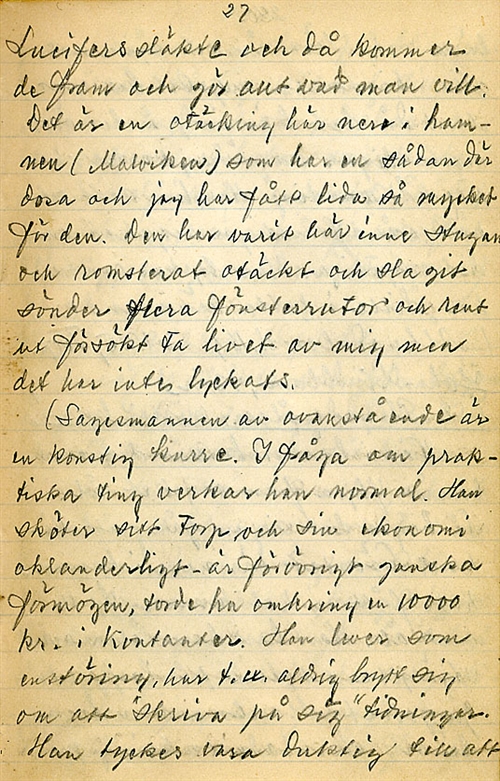 27
Lucifers släkte och då kommer
de fram och gör allt vad man vill.
Det är en otäcking här nere i ham-
nen (Malviken) som har en sådan där
dosa och jag har fått lida så mycket
för den. Den har varit här inne stugan
och romsterat otäckt och slagit
sönder flera fönsterrutor och rent
ut försökt ta livet av mig men
det har inte lyckats.
(Sagesmannen av ovanstående är
en konstig kurre. I fråga om prak-
tiska ting verkar han normal. Han
sköter sitt Torp och sin ekonomi
oklanderligt - är förövrigt ganska
förmögen, torde ha omkring en 10000
kr. i Kontanter. Han lever som
enstöring, har t. ex. aldrig brytt sig
om att "skriva på sig" tidningar.
Han tyckes vara duktig till att